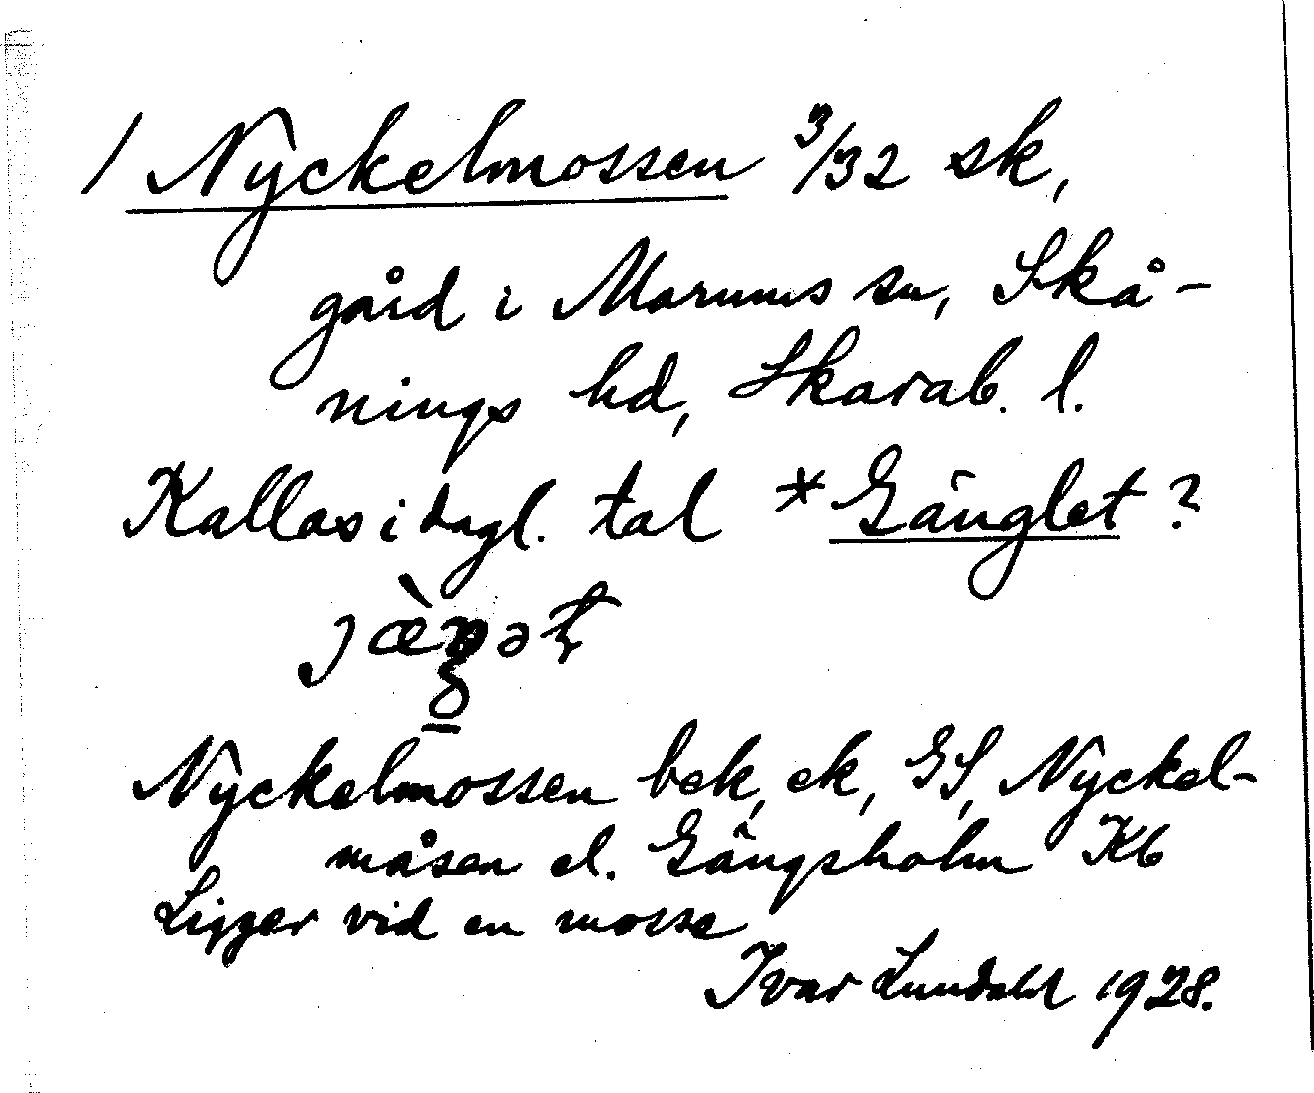 / Nyckelmossen 3/32 sk,
gård i Marums sn, Skå-
nings hd, Skarab. l.
Kallas i dagl. tal *Gänglet?
Nyckelmossen bek, ek, GS, Nyckel-
måsen el. Gängsholm Kb
Ligger vid en mosse
Ivar Lundahl 1928.